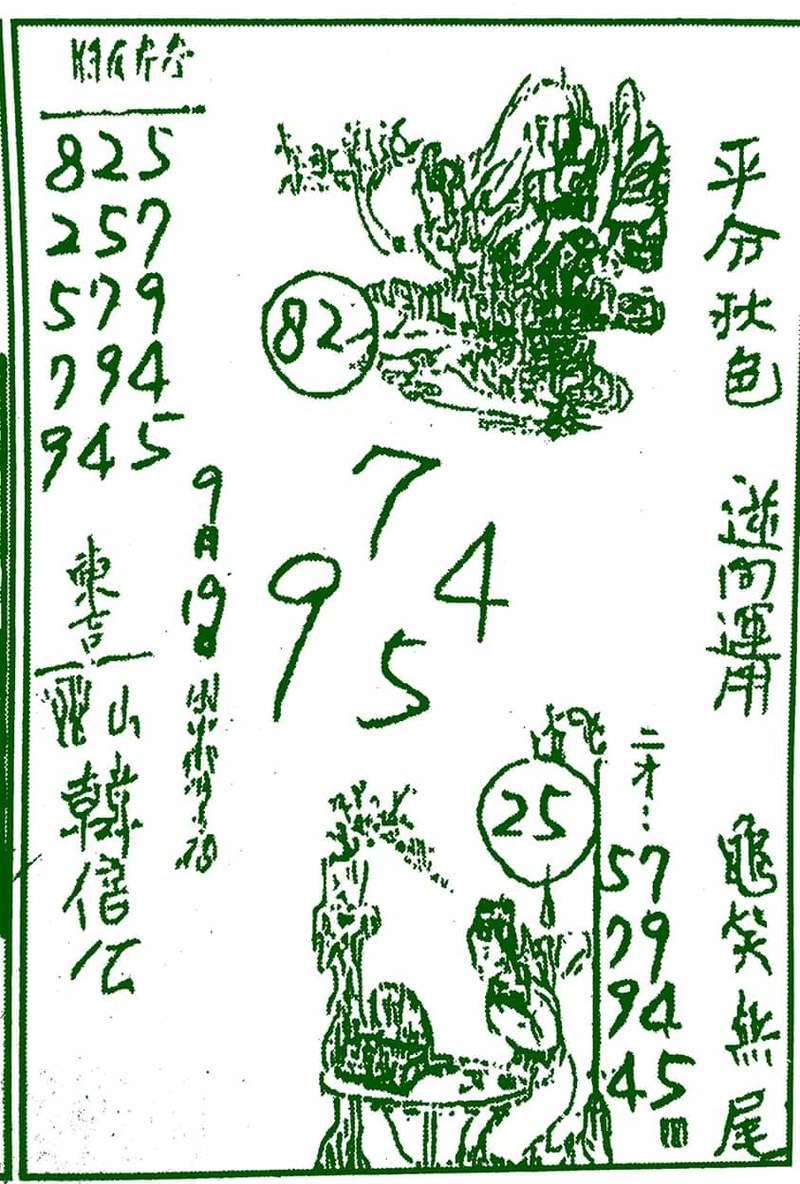 平分秋色
逆向運用
龜笑無尾
二才:
57
79
94
45
82
7
9 4
5
25
9月19日
825
257
579
794
945
東吉
山
韓信公